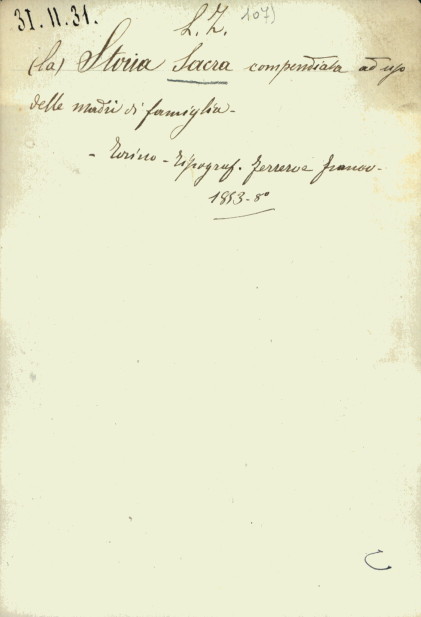 31.II.31.
L. Z. 107)
(la) Storia Sacra compendiata ad uso
delle madri di famiglia -
- Torino - Tipograf. Ferrero e Franco -
1853 - 8°